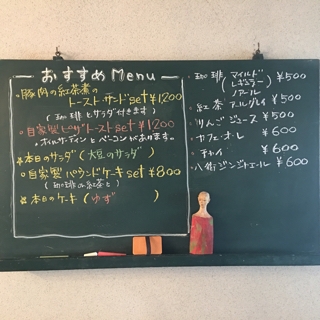 おすすめ Menu
豚肉の紅茶煮の
トースト・サンド set ¥1200
(珈琲とサラダ付きます)
自家製ピザトースト set ¥1200
オイルサーディンとベーコンがあります。
本日のサラダ (大豆のサラダ)
自家製パウンドケーキ set ¥800
(珈琲か紅茶と)
本日のケーキ (ゆず )
珈琲 (マイルド
レギュラー
ノアール) ¥500
紅茶 アールグレイ ¥500
りんごジュース ¥500
カフェ・オ・レ ¥600
チャイ ¥600
ジンジャエール ¥600